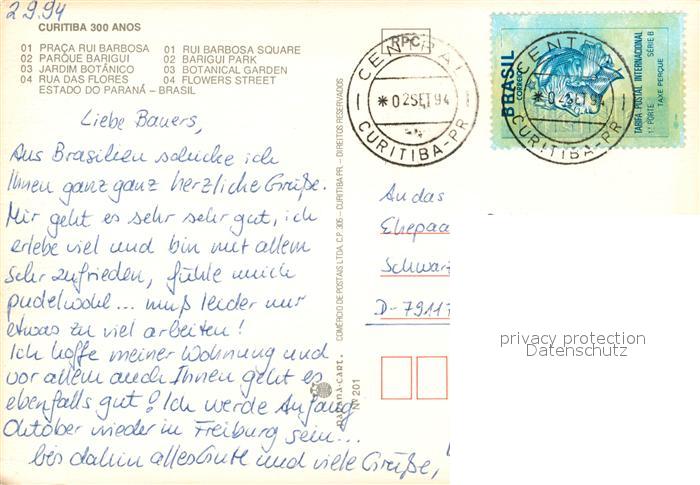 2.9.94
CURITIBA 300 ANOS
01 PRAÇA RUI BARBOSA 01 RUI BARBOSA SQUARE
02 PARQUE BARIGUI 02 BARIGUI PARK
03 JARDIM BOTÂNICO 03 BOTANICAL GARDEN
04 RUA DAS FLORES 04 FLOWERS STREET
ESTADO DO PARANÁ – BRASIL
Liebe Bauers,
Aus Brasilien schicke ich
Ihnen ganz ganz herzliche Grüße.
Mir geht es sehr sehr gut, ich
erlebe viel und bin mit allem
sehr zufrieden, fühle mich
pudelwohl... muß leider nur
etwas zu viel arbeiten!
Ich hoffe meiner Wohnung und
vor allem auch Ihnen geht es
ebenfalls gut! Ich werde Anfang
Oktober wieder in Freiburg sein...
bis dahin alles Gute und viele Grüße,
COMÉRCIO DE POSTAIS LTDA. C.P. 305 – CURITIBA-PR. – DIREITOS RESERVADOS
PARANÁ-CART.
Nº 201
RPC
CENTRAL
02 SET 94
CURITIBA-PR
BRASIL
CORREIO
TARIFA POSTAL INTERNACIONAL
1º PORTE SÉRIE B
TAXE PERÇUE
CENTRAL
02 SET 94
CURITIBA-PR
An das
Ehepaa
Schwarz
D-7911
privacy protection
Datenschutz